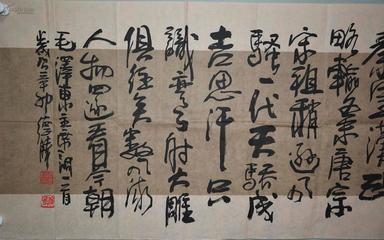 秦皇汉武
略输文采唐宗
宋祖稍逊风
骚一代天骄成
吉思汗只
识弯弓射大雕
俱往矣数风流
人物还看今朝
毛泽东主席词一首
岁次辛卯德胜